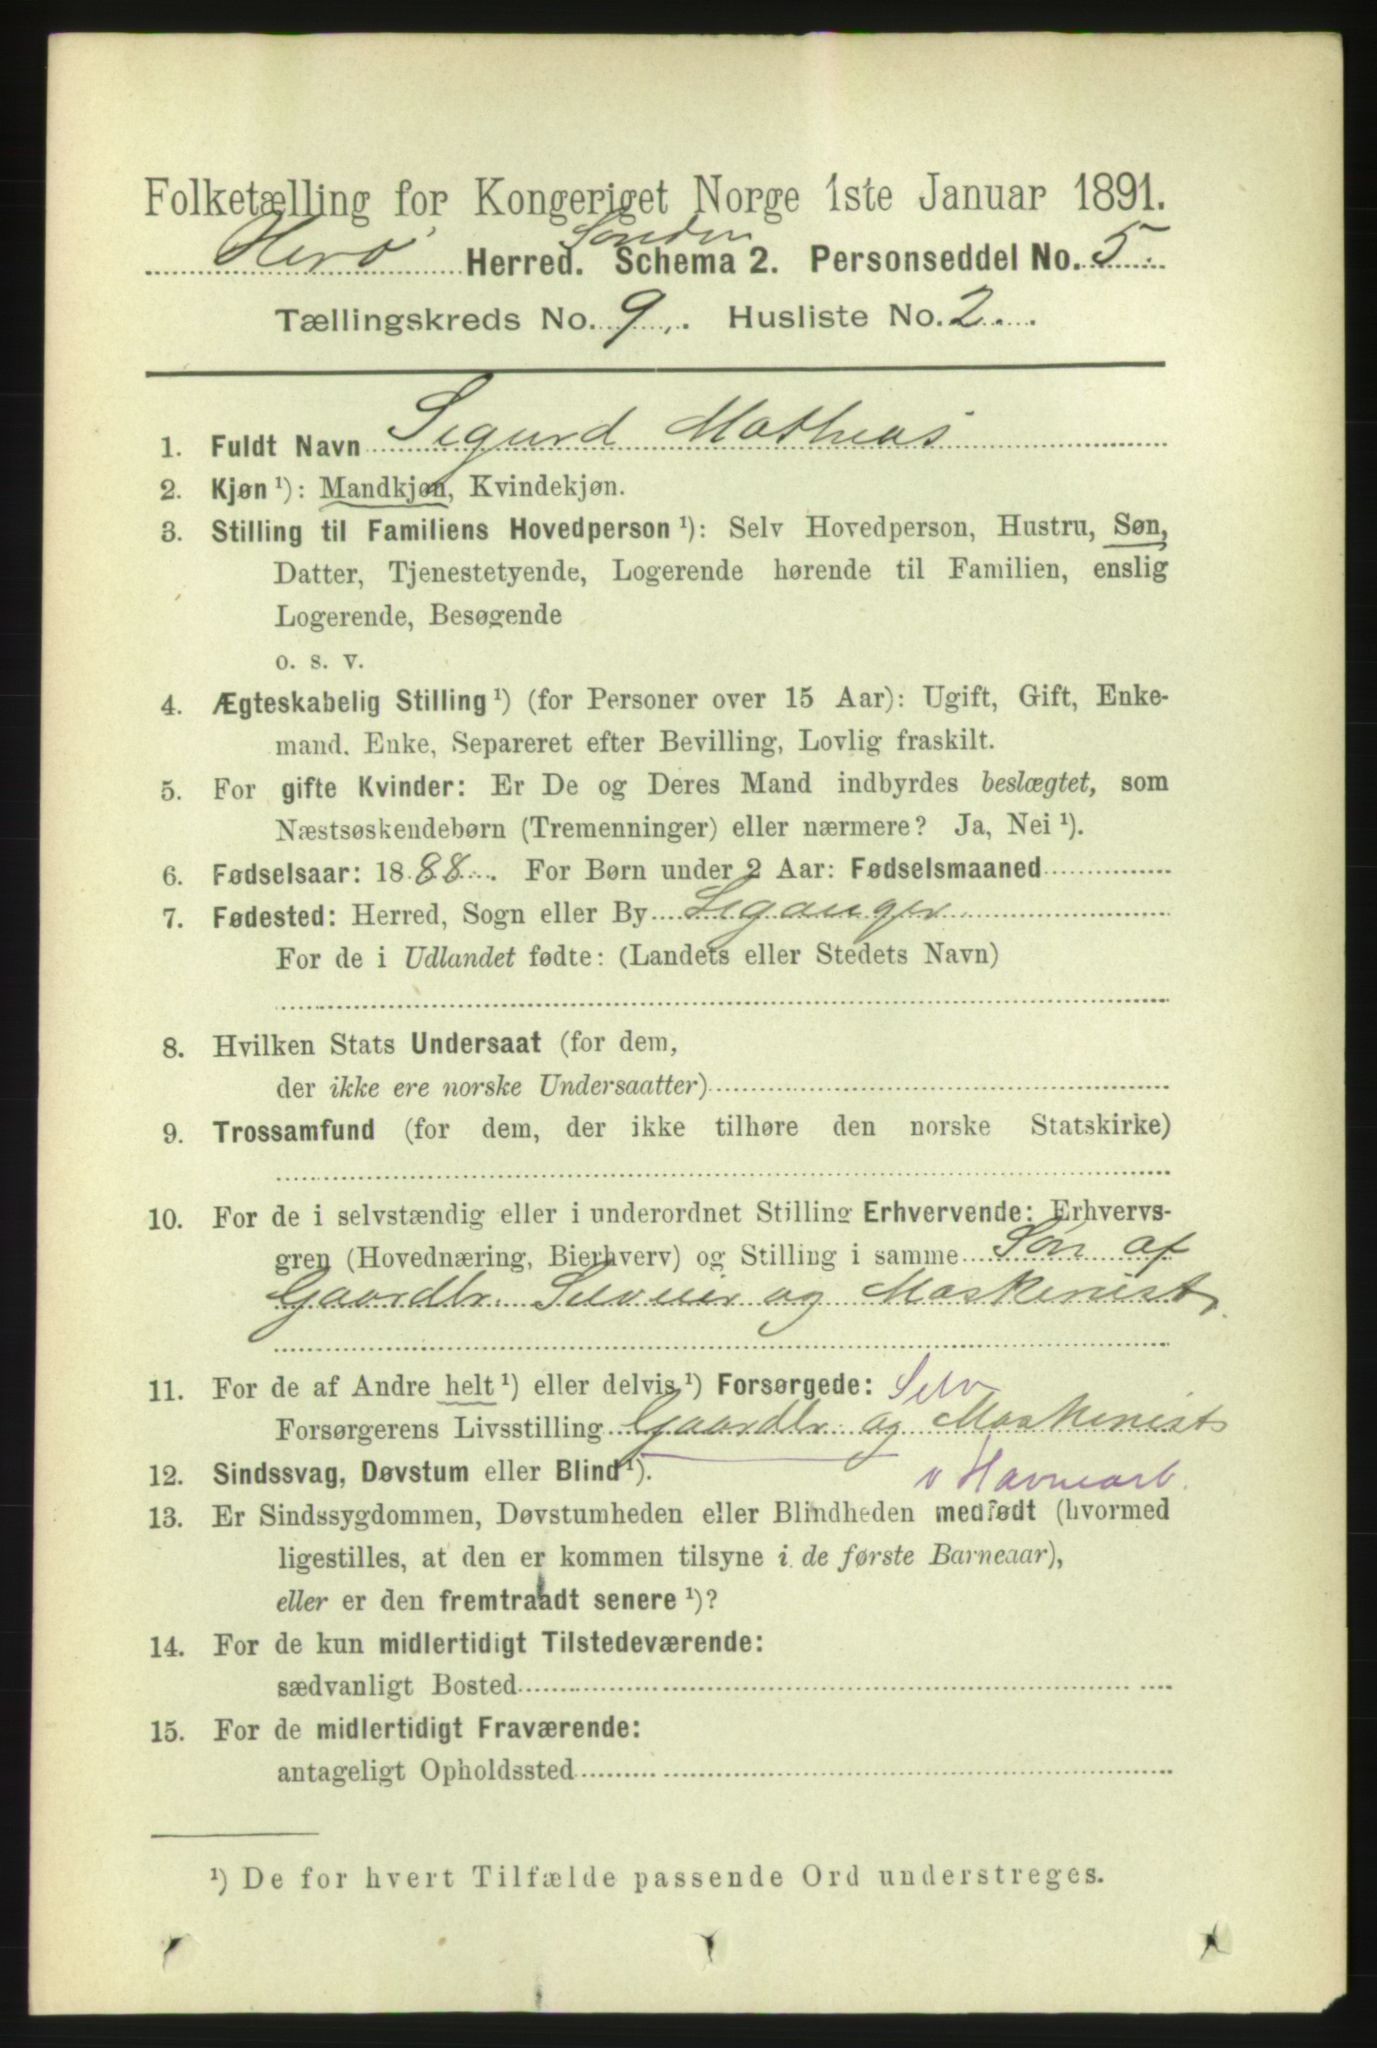 Folketælling for Kongeriget Norge 1ste Januar 1891.
Herø Herred. Schema 2. Personseddel No. 5.
Tællingskreds No. 9. Husliste No. 2.
1. Fuldt Navn Sigurd Mathias
2. Kjøn ¹): Mandkjøn, Kvindekjøn.
3. Stilling til Familiens Hovedperson ¹): Selv Hovedperson, Hustru, Søn,
Datter, Tjenestetyende, Logerende hørende til Familien, enslig
Logerende, Besøgende
o. s. v.
4. Ægteskabelig Stilling ¹) (for Personer over 15 Aar): Ugift, Gift, Enke-
mand, Enke, Separeret efter Bevilling, Lovlig fraskilt.
5. For gifte Kvinder: Er De og Deres Mand indbyrdes beslægtet, som
Næstsøskendebørn (Tremenninger) eller nærmere? Ja, Nei ¹).
6. Fødselsaar: 1888. For Børn under 2 Aar: Fødselsmaaned
7. Fødested: Herred, Sogn eller By Leganger
For de i Udlandet fødte: (Landets eller Stedets Navn)
8. Hvilken Stats Undersaat (for dem,
der ikke ere norske Undersaatter)
9. Trossamfund (for dem, der ikke tilhøre den norske Statskirke)
10. For de i selvstændig eller i underordnet Stilling Erhvervende: Erhvervs-
gren (Hovednæring, Bierhverv) og Stilling i samme Søn af
Gaardbr. Selveier og Maskinist,
11. For de af Andre helt ¹) eller delvis ¹) Forsørgede: Selv
Forsørgerens Livsstilling Gaardbr. og Maskinist
12. Sindssvag, Døvstum eller Blind ¹). v Havnearb.
13. Er Sindssygdommen, Døvstumheden eller Blindheden medfødt (hvormed
ligestilles, at den er kommen tilsyne i de første Barneaar),
eller er den fremtraadt senere ¹)?
14. For de kun midlertidigt Tilstedeværende:
sædvanligt Bosted
15. For de midlertidigt Fraværende:
antageligt Opholdssted
¹) De for hvert Tilfælde passende Ord understreges.